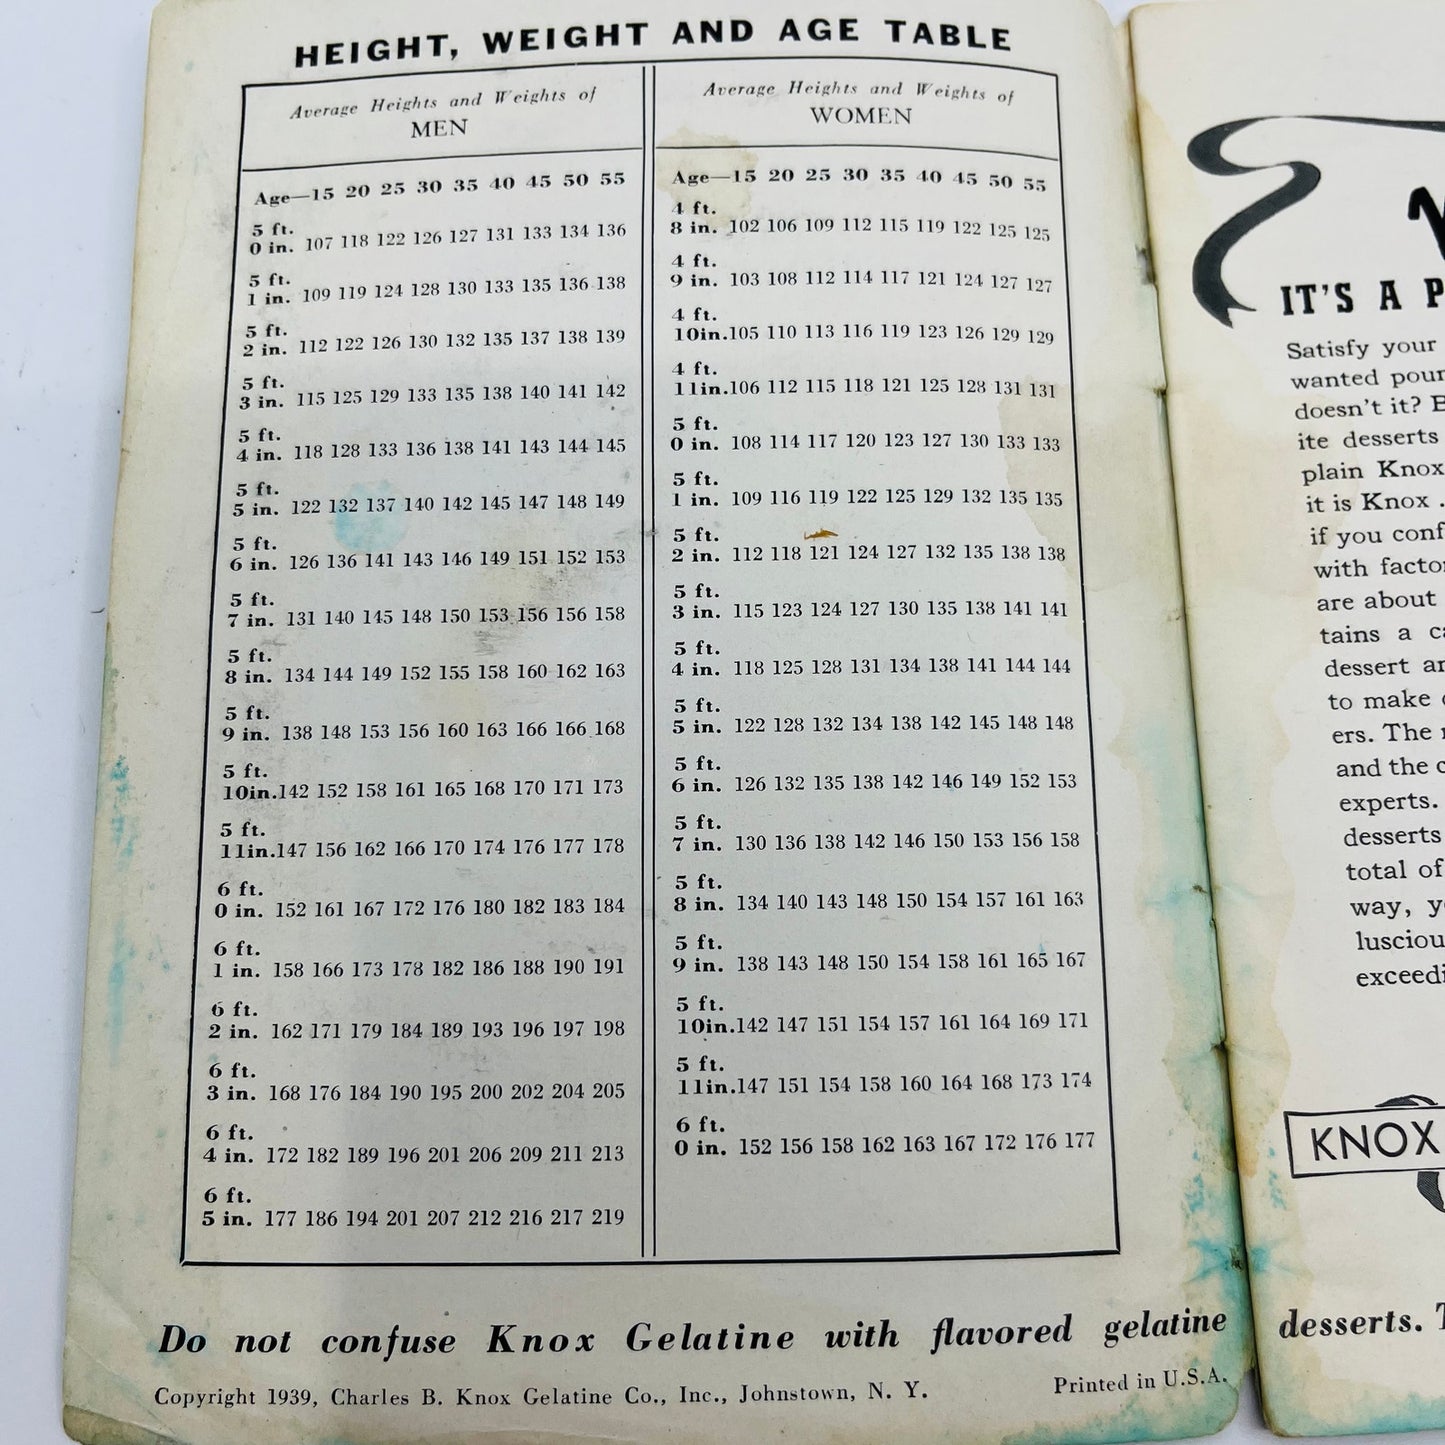 HEIGHT, WEIGHT AND AGE TABLE
Average Heights and Weights of
MEN
Age—15 20 25 30 35 40 45 50 55
5 ft.
0 in. 107 118 122 126 127 131 133 134 136
5 ft.
1 in. 109 119 124 128 130 133 135 136 138
5 ft.
2 in. 112 122 126 130 132 135 137 138 139
5 ft.
3 in. 115 125 129 133 135 138 140 141 142
5 ft.
4 in. 118 128 133 136 138 141 143 144 145
5 ft.
5 in. 122 132 137 140 142 145 147 148 149
5 ft.
6 in. 126 136 141 143 146 149 151 152 153
5 ft.
7 in. 131 140 145 148 150 153 156 156 158
5 ft.
8 in. 134 144 149 152 155 158 160 162 163
5 ft.
9 in. 138 148 153 156 160 163 166 166 168
5 ft.
10in.142 152 158 161 165 168 170 171 173
5 ft.
11in.147 156 162 166 170 174 176 177 178
6 ft.
0 in. 152 161 167 172 176 180 182 183 184
6 ft.
1 in. 158 166 173 178 182 186 188 190 191
6 ft.
2 in. 162 171 179 184 189 193 196 197 198
6 ft.
3 in. 168 176 184 190 195 200 202 204 205
6 ft.
4 in. 172 182 189 196 201 206 209 211 213
6 ft.
5 in. 177 186 194 201 207 212 216 217 219
Average Heights and Weights of
WOMEN
Age—15 20 25 30 35 40 45 50 55
4 ft.
8 in. 102 106 109 112 115 119 122 125 125
4 ft.
9 in. 103 108 112 114 117 121 124 127 127
4 ft.
10in.105 110 113 116 119 123 126 129 129
4 ft.
11in.106 112 115 118 121 125 128 131 131
5 ft.
0 in. 108 114 117 120 123 127 130 133 133
5 ft.
1 in. 109 116 119 122 125 129 132 135 135
5 ft.
2 in. 112 118 121 124 127 132 135 138 138
5 ft.
3 in. 115 123 124 127 130 135 138 141 141
5 ft.
4 in. 118 125 128 131 134 138 141 144 144
5 ft.
5 in. 122 128 132 134 138 142 145 148 148
5 ft.
6 in. 126 132 135 138 142 146 149 152 153
5 ft.
7 in. 130 136 138 142 146 150 153 156 158
5 ft.
8 in. 134 140 143 148 150 154 157 161 163
5 ft.
9 in. 138 143 148 150 154 158 161 165 167
5 ft.
10in.142 147 151 154 157 161 164 169 171
5 ft.
11in.147 151 154 158 160 164 168 173 174
6 ft.
0 in. 152 156 158 162 163 167 172 176 177
Do not confuse Knox Gelatine with flavored gelatine desserts.
Copyright 1939, Charles B. Knox Gelatine Co., Inc., Johnstown, N. Y.
Printed in U.S.A.
IT'S A
Satisfy your
wanted
doesn't it?
ite desserts
plain Knox
it is Knox .
if you
with
are about
tains a
dessert
to make
ers. The
and the
experts.
desserts
total of
way,
KNOX